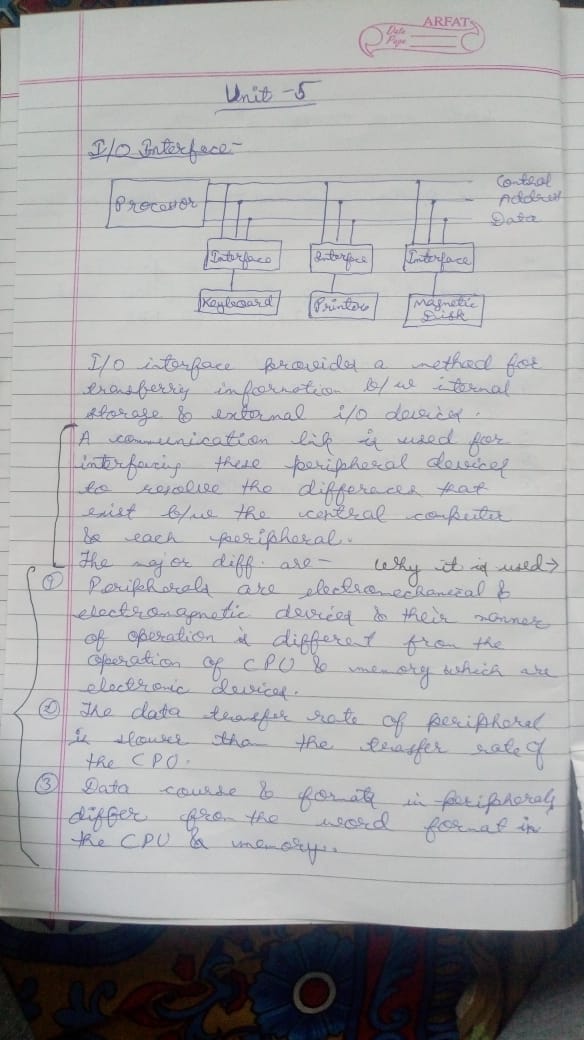 ARFAT
Date
Page
Unit - 5
I/O Interface -
Processor
Control
Address
Data
Interface Interface Interface
Keyboard Printer Magnetic
Disk
I/O interface provides a method for
transferry information b/w iternal
storage & external i/o devices.
A communication lik is used for
interfacing these peripheral devices
to resolve the differeces that
exist b/w the central computer
& each peripheral.
The major diff. are - Why it is used →
① Peripherals are electromechanical &
electromagnetic devices & their manner
of operation is different from the
operation of CPU & memory which are
electronic devices.
② The data transfer rate of peripheral
is slower than the trasfer rate of
the CPU.
③ Data course & formats in peripherals
differ from the word format in
the CPU & memory.